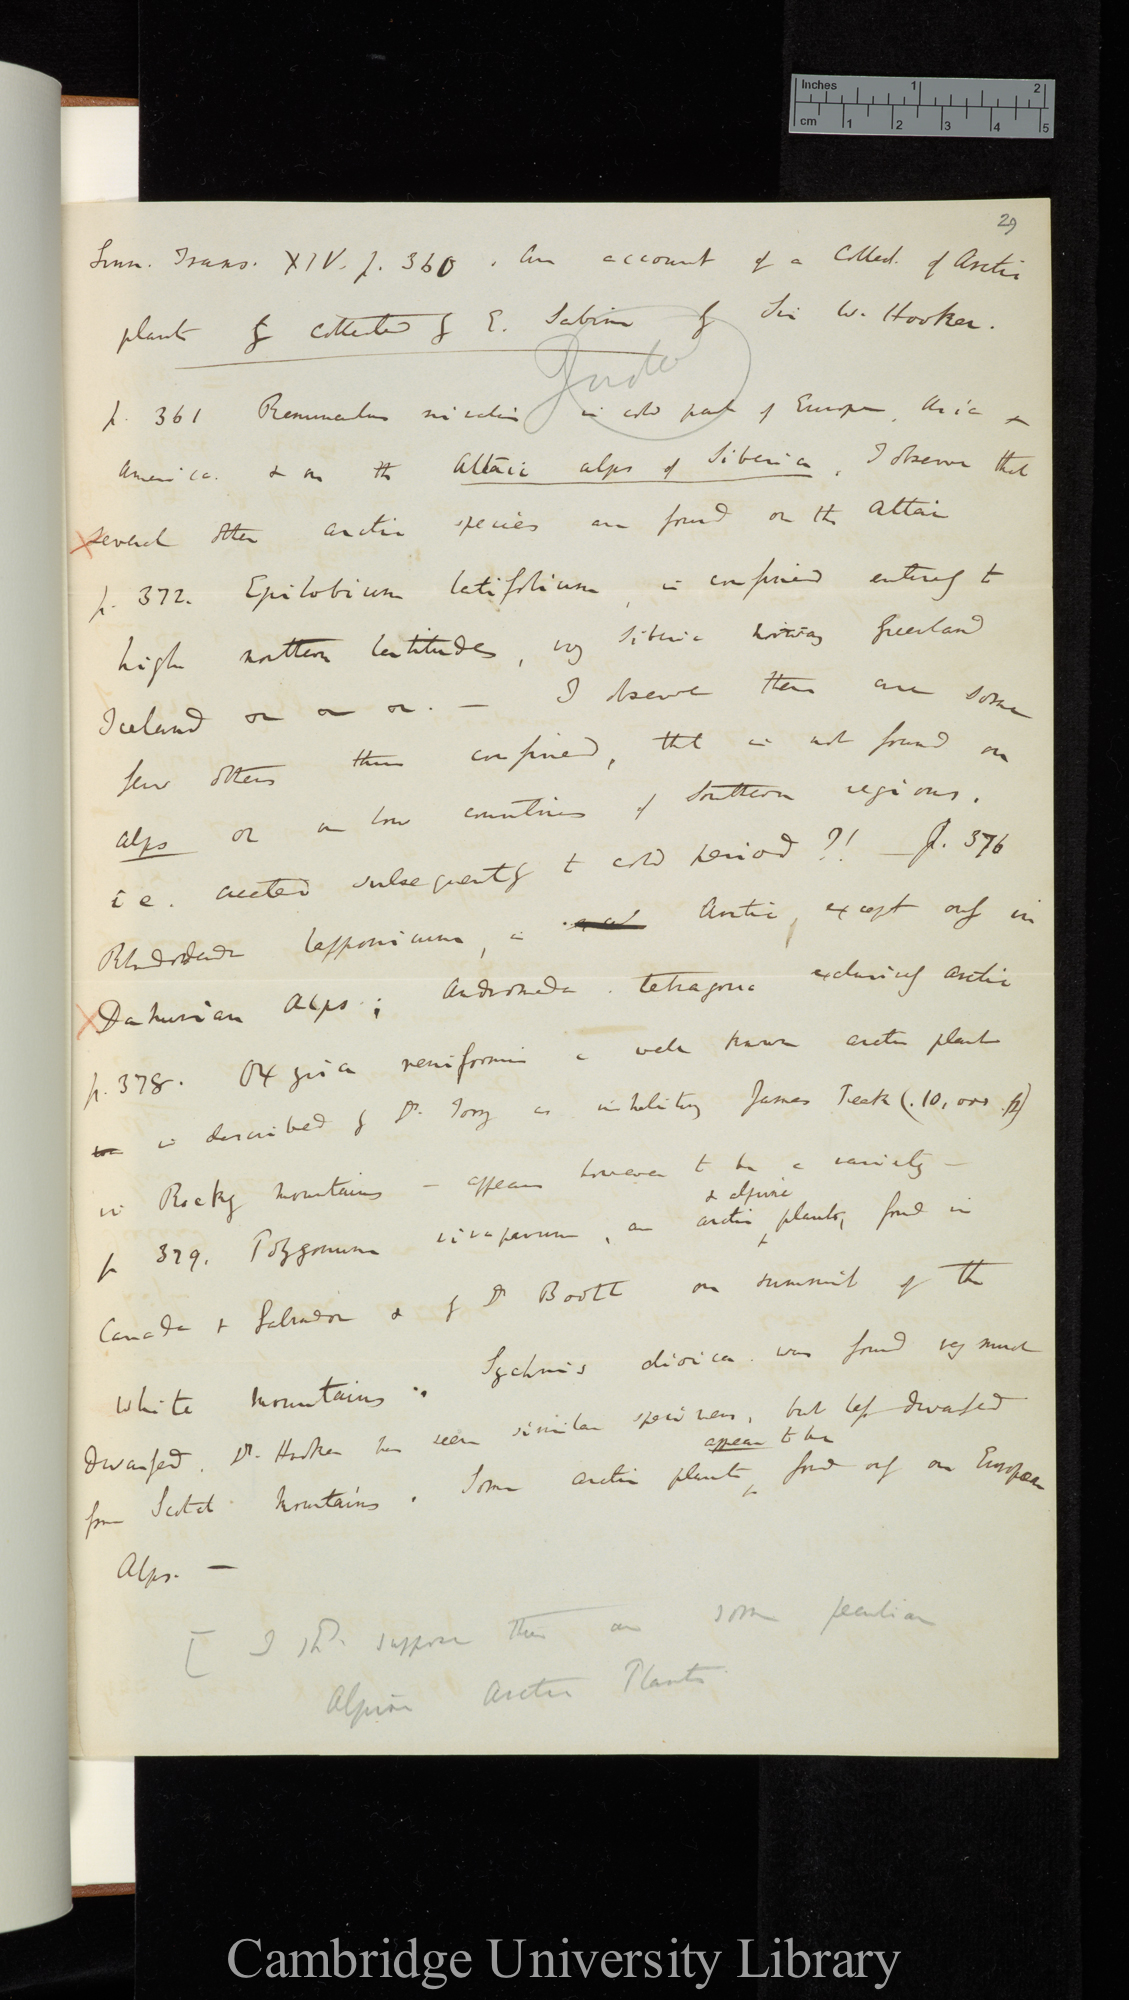 Inches 1 2
cm 1 2 3 4 5
29
Linn. Trans. XIV. p. 360 . An account of a Collect. of Arctic
plants by collected by E. Sabine by Sir W. Hooker.
p. 361 Ranunculus nivalis in cold parts of Europe, Asia &
America. & on the Altaic alps of Siberia, I observe that
several other arctic species are found on the Altai
p. 372. Epilobium latifolium, is confined entirely to
high northern latitudes, viz Siberia Norway Greenland
Iceland &c &c &c. — I observe there are some
few others thus confined, that is not found on
alps or in low countries of southern regions.
i e. created subsequently to cold period ?! — p. 376
Rhododendr lapponicum, is Arctic, except only in
Dahurian Alps; Andromeda tetragona exclusively arctic
p. 378. Oxyria reniformis a well known arctic plant
is described by Dr. Torrey as inhabiting James Peak (.10,000 ft)
in Rocky Mountains — appears however to be a variety —
& alpine
p 379. Polygonum viviparum, an arctic plants, found in
Canada & Labrador & by Dr Boott on summit of the
White Mountains. Lychnis dioica was found very much
dwarfed. Dr. Hooker has seen similar specimens, but less dwarfed
appear to be
from Scotch Mountains. Some arctic plants found only on European
Alps. —
[ I shd. suppose there are some peculiar
Alpine Arctic Plants
Cambridge University Library